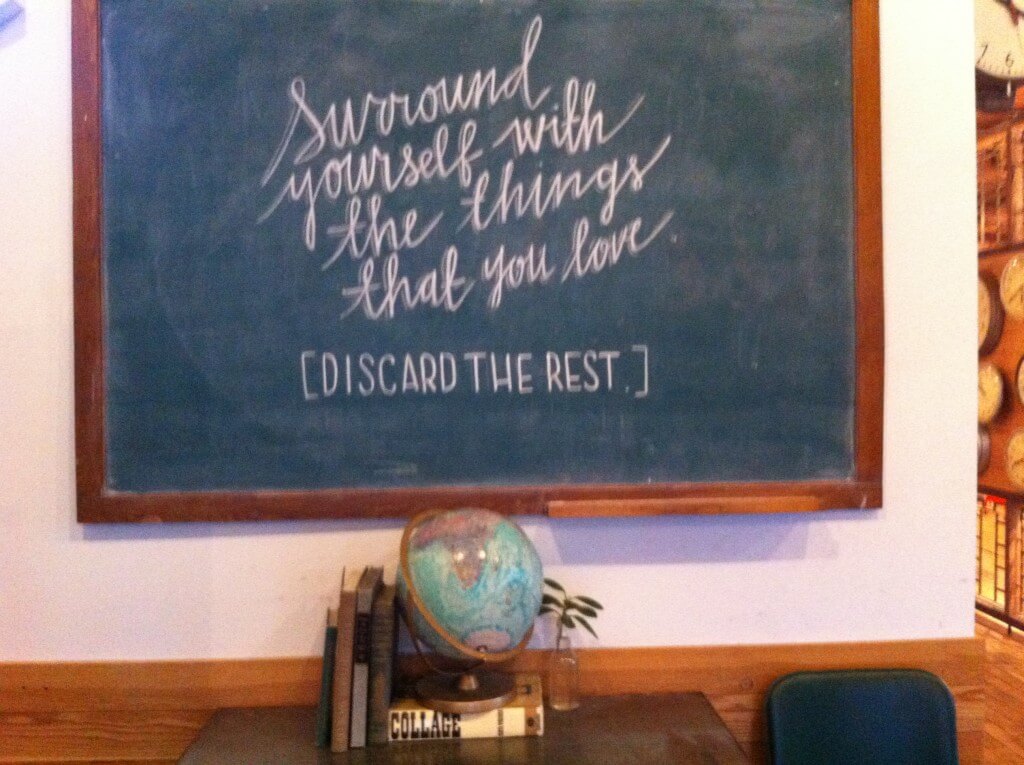 Surround
yourself with
the things
that you love.
[DISCARD THE REST.]
COLLAGE
6